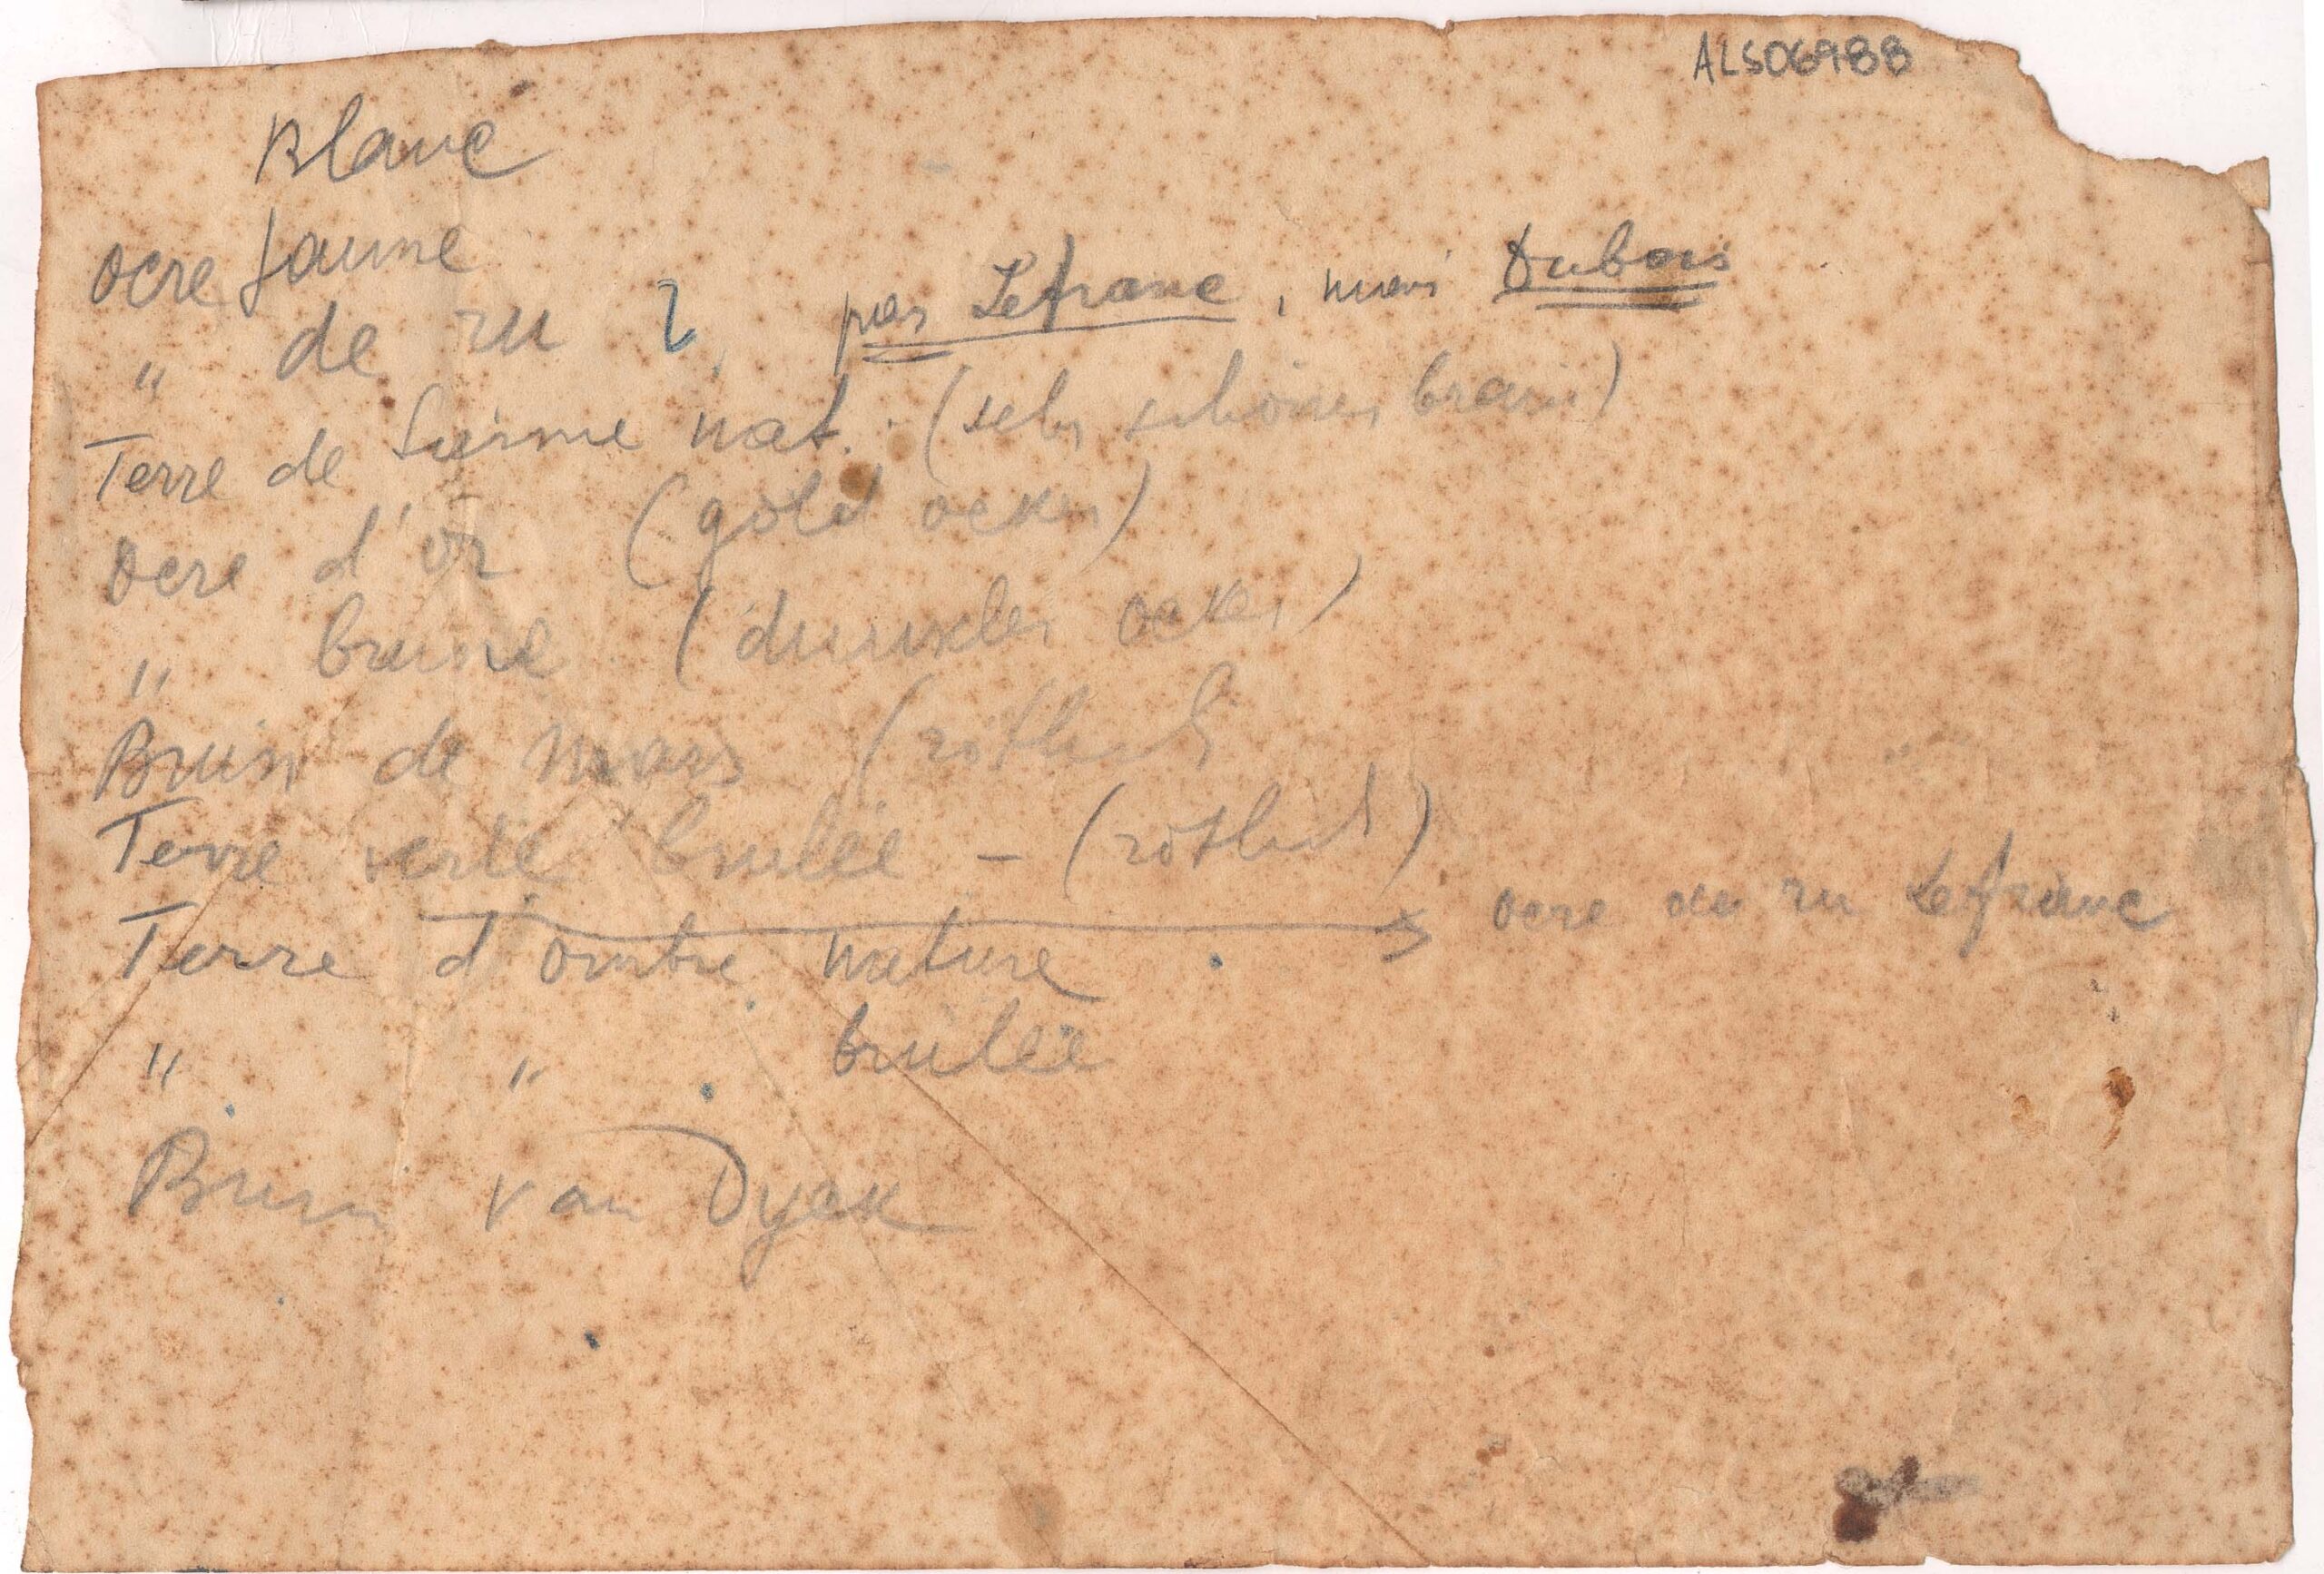 ALS06988
Blanc
Ocre Jaune
" de ru 2, pas Lefranc, mais Dubois
Terre de Sienne nat. (sehr schönes braun)
Ocre d'or (gold ocker)
" brune (dunxler ocker)
Brun de Mars (rötlich
Terre verte brulée - (rötlich)
ocre de ru Lefranc
Terre d'ombre nature
" " brulée
Brun van Dyck